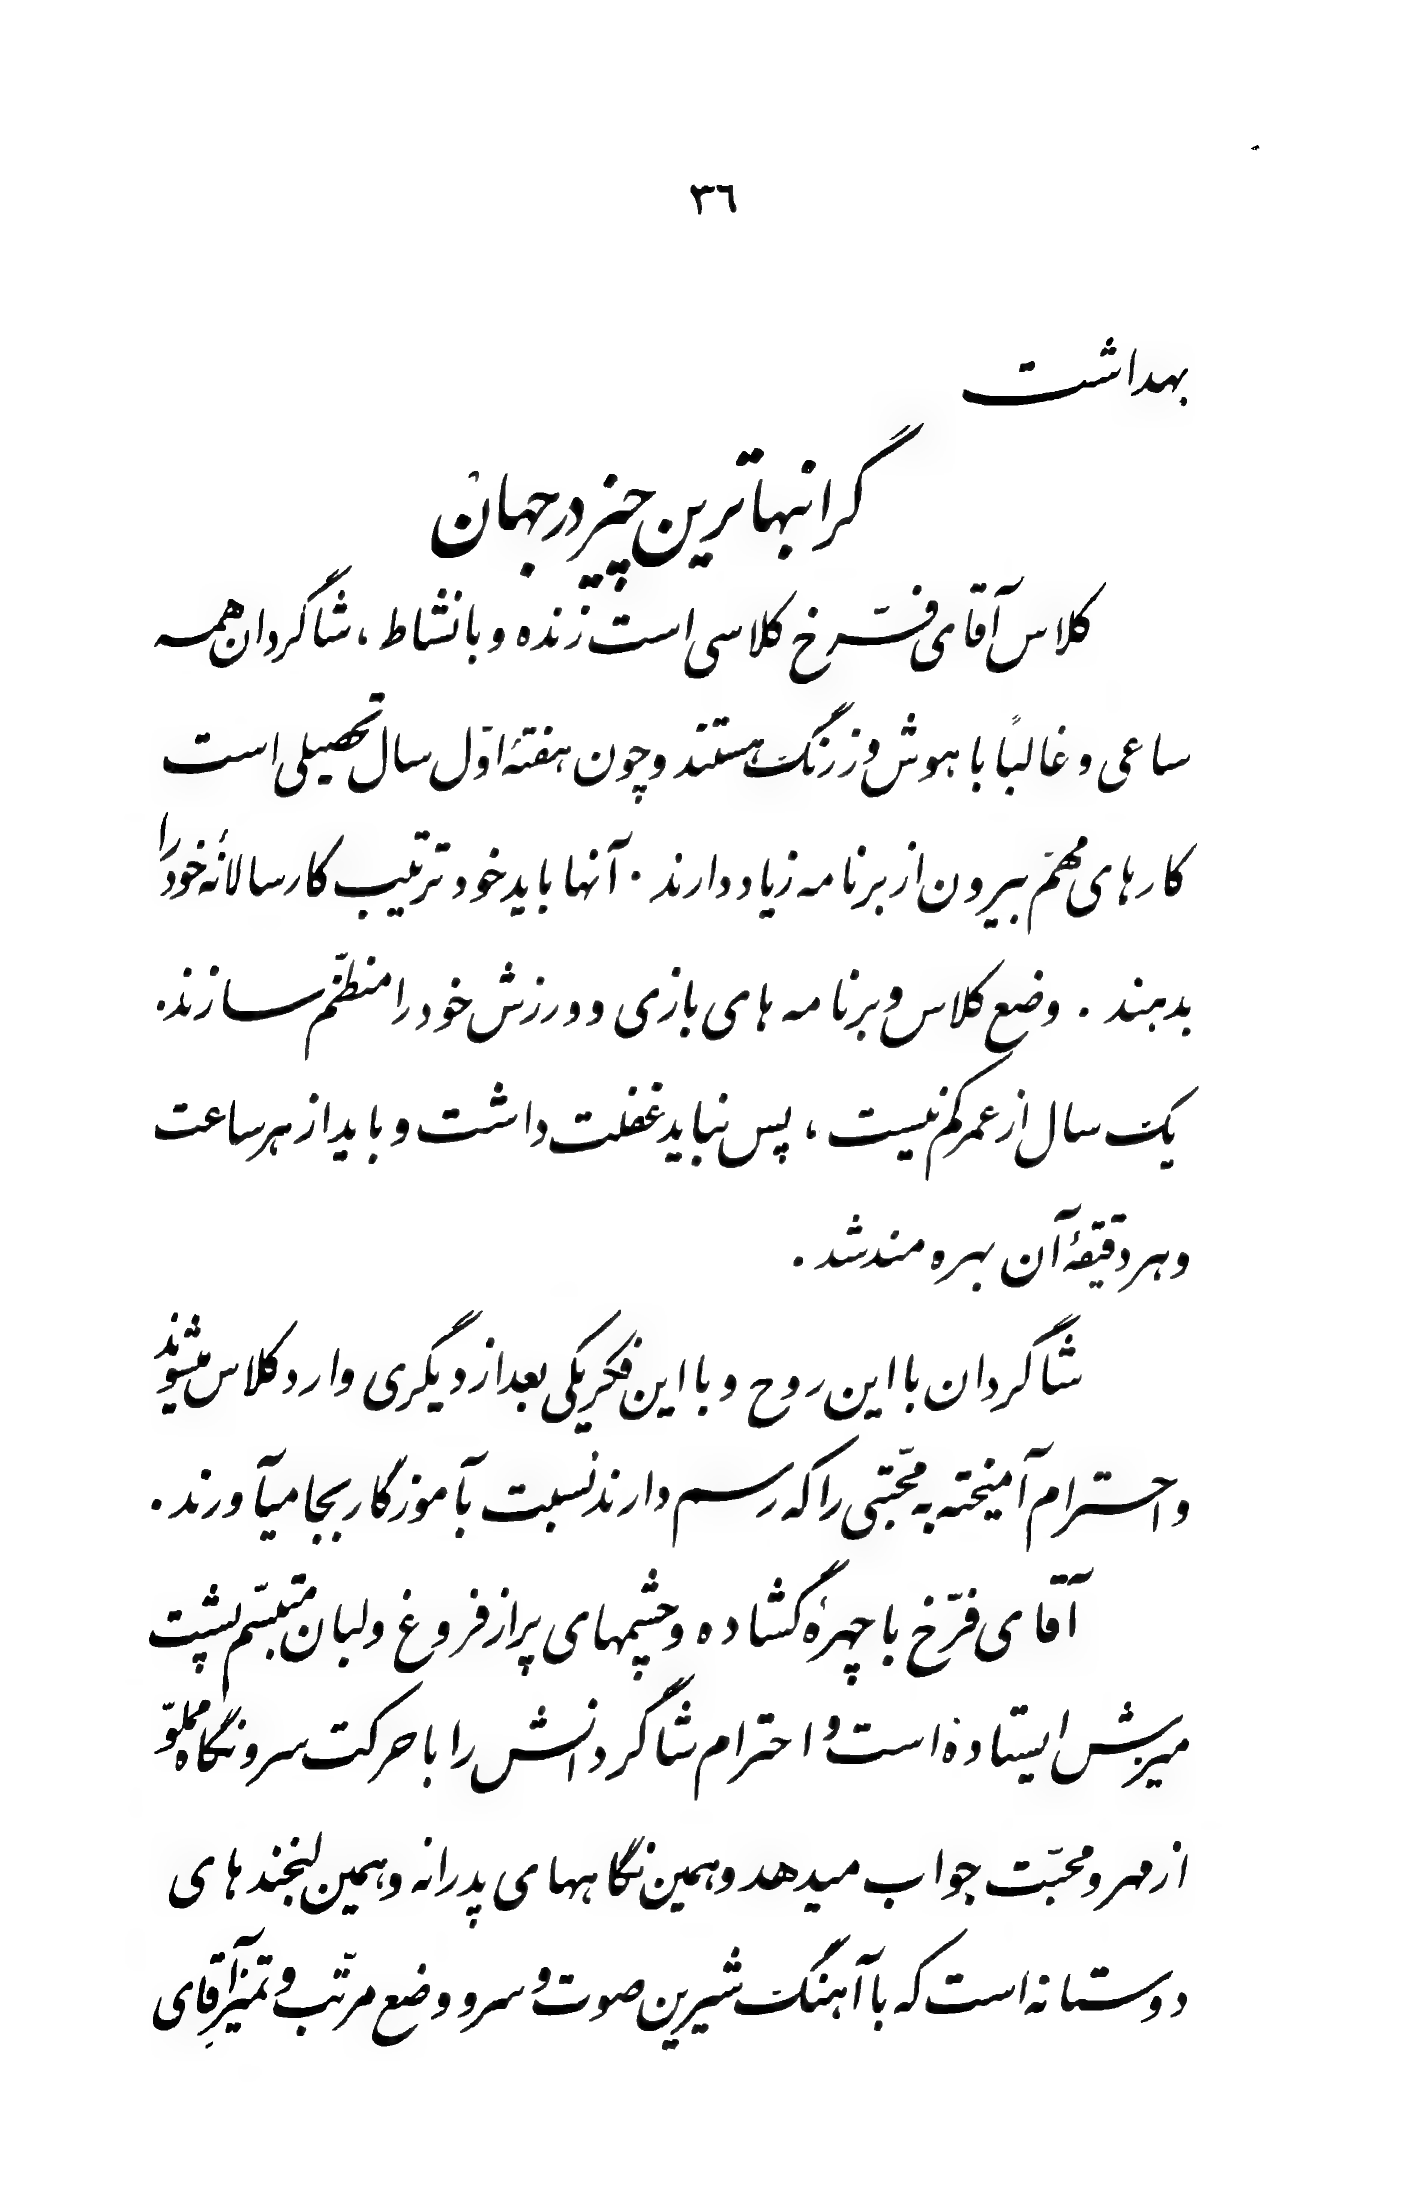 ٣٦
بهداشت
گرانبهاترین چیز در جهان
کلاس آقای فرّخ کلاسی است زنده و با نشاط ، شاگردان همه
ساعی و غالبًا با هوش و زرنگ هستند و چون هفتهٔ اوّل سال تحصیلی است
کارهای مهمّ بیرون از برنامه زیاد دارند . آنها باید خود ترتیب کار سالانهٔ خود را
بدهند . وضع کلاس و برنامه های بازی و ورزش خود را منظّم سازند .
یک سال از عمر کم نیست ، پس نباید غفلت داشت و باید از هر ساعت
و هر دقیقهٔ آن بهره مند شد .
شاگردان با این روح و با این فکر یکی بعد از دیگری وارد کلاس میشوند
و احترام آمیخته به محّبتی را که رسم دارند نسبت بآموزگار بجا میآورند .
آقای فرّخ با چهرهٔ گشاده و چشمهای پر از فروغ و لبان متبسّم پشت
میزش ایستاده است و احترام شاگردانش را با حرکت سر و نگاه مملوّ
از مهر و محبّت جواب میدهد و همین نگاههای پدرانه و همین لبخندهای
دوستانه است که با آهنگ شیرین صوت و سر و وضع مرتّب و تمیز آقای